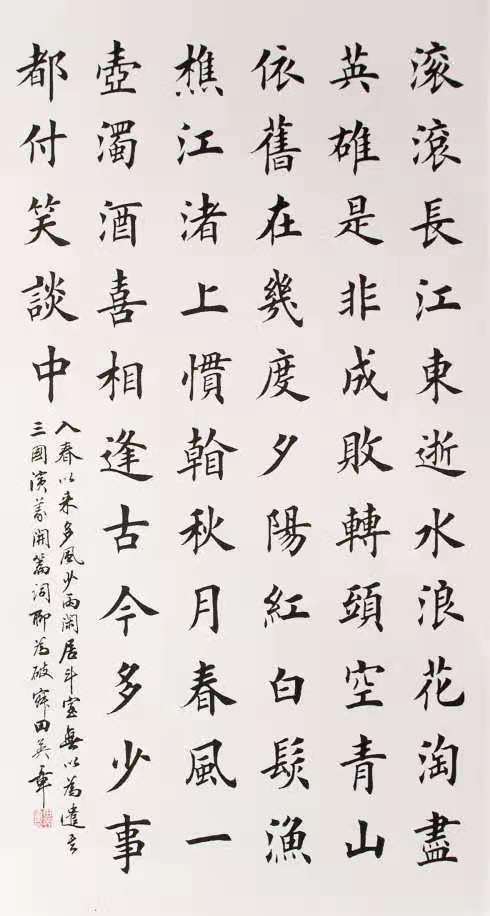 滚滚長江東逝水浪花淘盡
英雄是非成敗轉頭空青山
依舊在幾度夕陽紅白髮漁
樵江渚上慣看秋月春風一
壺濁酒喜相逢古今多少事
都付笑談中
入春以来多風少雨閑居斗室無以為遣書
三國演義開篇詞聊為破寂田英章